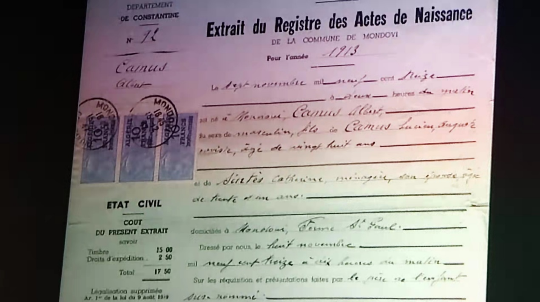 DÉPARTEMENT
DE CONSTANTINE
N° 92
Camus
Albert
MONDOVI
ETAT CIVIL
COUT
DU PRÉSENT EXTRAIT
savoir
Timbre 15 00
Droits d'expédition.. 2 50
Total 17 50
Légalisation supprimée
Extrait du Registre des Actes de Naissance
DE LA COMMUNE DE MONDOVI
Pour l'année 1913
Le sept novembre mil neuf cent treize
à deux heures du matin
est né à Mondovi, Camus Albert,
du sexe masculin, fils de Camus Lucien, Auguste
âgé de vingt huit ans
et de Sintès Catherine, ménagère, son épouse âgée
de trente et un ans
domiciliés à Mondovi, Ferme St Paul
Dressé par nous, le huit novembre
mil neuf cent treize à dix heures du matin
Sur les réquisition et présentations faites par le père de l'enfant
sus nommé